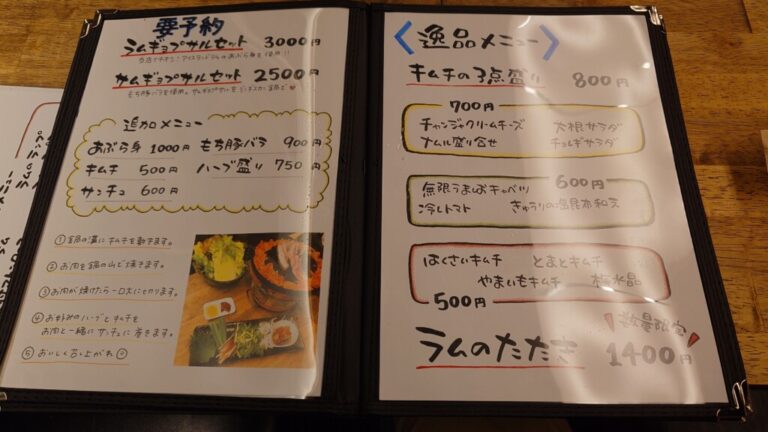 要予約
ラムギョプサルセット 3000円
サムギョプサルセット 2500円
追加メニュー
あぶら身 1000円 もち豚バラ 900円
キムチ 500円 ハーブ盛り 750円
サンチュ 600円
① 鍋の溝にキムチを敷きます。
② お肉を鍋の山で焼きます。
③ お肉が焼けたら一口大に切ります。
④ お好みのハーブとキムチを
お肉と一緒にサンチュに巻きます。
⑤ おいしく召し上がれ
逸品メニュー
キムチの3点盛り 800円
700円
チャンジャクリームチーズ 大根サラダ
ナムル盛り合せ チョレギサラダ
600円
無限うましおキャベツ
冷しトマト きゅうりの塩昆布和え
はくさいキムチ とまとキムチ
やまいもキムチ 板氷晶
500円
数量限定
ラムのたたき 1400円